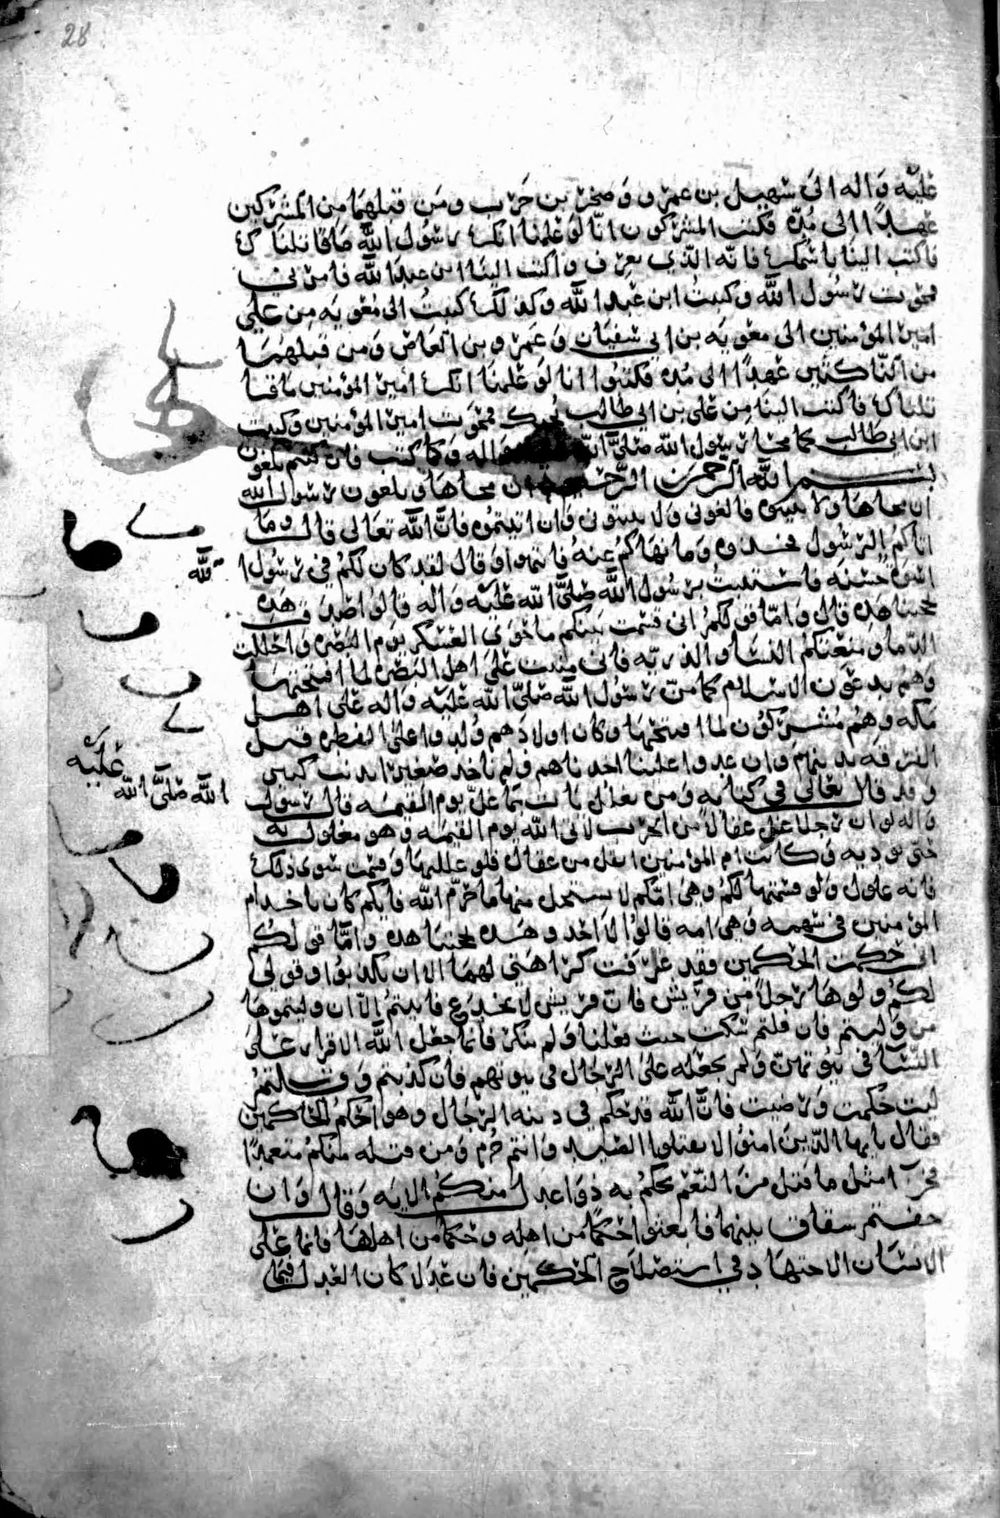 28
عليه واله الى سهيل بن عمرو وصخر بن حرب ومن قبلهما من المشركين
عهدا الى مدة فكتب المشركون انا لو علمنا انك رسول الله ما قاتلناك
فاكتب الينا باسمك فانه الذي يعرف واكتب الينا ابن عبد الله فامرني
فمحوت رسول الله وكتبت ابن عبد الله وكذلك كتبت الى معويه من علي
امير المؤمنين الى معويه بن ابي سفيان وعمرو بن العاص ومن قبلهما
من الناكثين عهدا الى مده فكتبوا انا لو علمنا انك امير المؤمنين ما قا
تلناك فاكتب الينا من علي بن ابي طالب فمحوت امير المؤمنين وكتبت
ابن ابي طالب كما محا رسول الله صلى الله واله وكما كتب فان كنتم تلغون
بسم الله الرحمن الرحيم ان محاها وتلغون رسول الله
ان محاها ولا فالغوني ولا وان اتيتموه فان الله تعالى قال وما
اتاكم الرسول فخذوه وما نهاكم عنه فانتهوا وقال لقد كان لكم في رسول ا لله
اسوة حسنه فاستننت برسول الله صلى الله عليه واله قالوا صدق هذه
بحجتنا هذه قال واما قولكم اني قسمت بينكم ما حوى العسكر يوم البصره واحللت
الدما ومنعتكم النسا والذريه فاني مننت على اهل البصره لما افتتحتها
وهم يدعون الاسلام كما من رسول الله صلى الله عليه واله على اهل
مكه وهم مشركون لما افتتحها وكان اولادهم ولدوا على الفطره قبل
الفرقه بدينهم وان عدوا علينا اخذناهم فلم ناخذ صغيرا بذنب كبير
وقد قال تعالى في كتابه ومن يغلل يات بما غل يوم القيمه قال رسول الله صلى الله عليه
واله لو ان رجلا غل عقالا من الحرب لاتى الله يوم القيمه وهو مغلول به
حتى يوديه وكانت ام المؤمنين اثقل من عقال فلو غللتها وقسمت سوى ذلك
فانه غلول ولو قسمتها لكم وهي امكم لا ستحل منها ما حرم الله فايكم كان ياخذ ام
المؤمنين في سهمه وهي امه قالوا لا احد وهذه بحجتنا هذه واما قولكم
اني حكمت الحكمين فقد عرفت كراهتي لهما الا ان تكذبوا وقولي
لكم ولوها رجلا من قريش فان قريش لا تخدع فابيتم الا ان وليتموها
من وليتم فان قلتم سكت حيث فعلنا ولم تنكر فانما جعل الله الاقرار على
النسا في بيوتهن ولم يجعله على الرجال في بيوتهم فان كذبتم وقلتم
انت حكمت ورضيت فان الله قد حكم في دينه الرجال وهو احكم الحاكمين
فقال يايها الذين امنوا لا تقتلوا الصيد وانتم حرم ومن قتله منكم متعمدا
فجزآ مثل ما قتل من النعم يحكم به ذوا عدل منكم الايه وقال وان
خفتم شقاق بينهما فابعثوا حكما من اهله وحكما من اهلها فانما على
الانسان الاجتهاد في استصلاح الحكمين فان عدلا كان العدل فيما